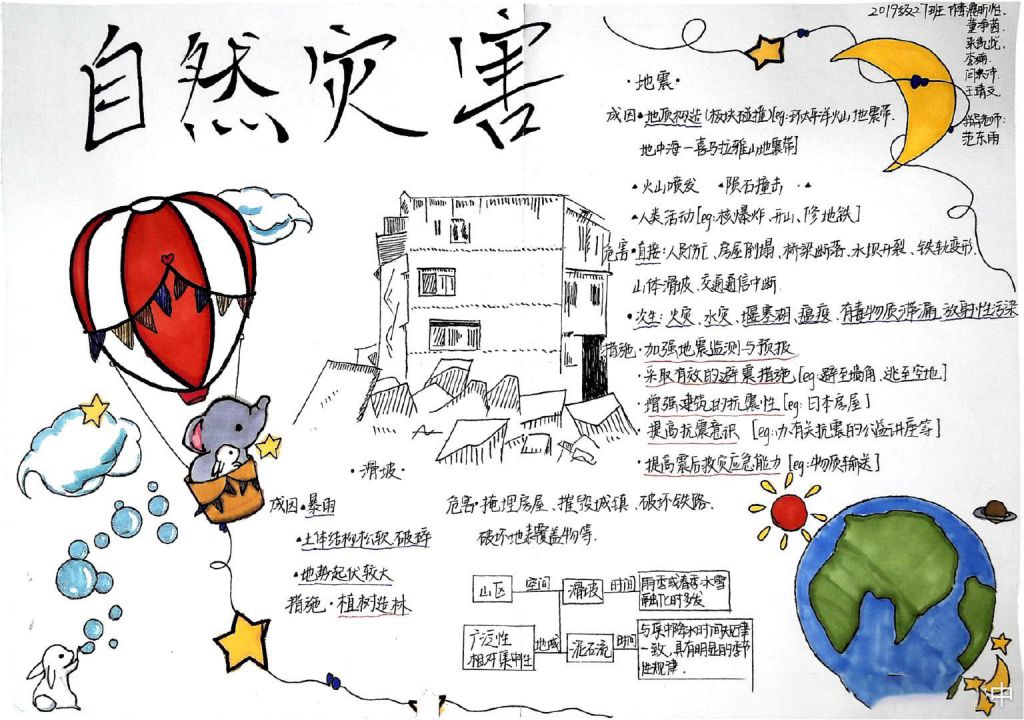 自然灾害
2019级27班
董
李
王靖文
指导老师:
范东雨
·地震·
成因·地质构造(板块碰撞)[eg:环太平洋火山地震带.
地中海一喜马拉雅山地震带]
·火山喷发 ·陨石撞击··▲
·人类活动[eg:核爆炸、开山、修地铁]
危害·直接:人员伤亡、房屋倒塌、桥梁断落、水坝开裂、铁轨变形.
山体滑坡、交通通信中断.
·次生:火灾、水灾、堰塞湖、瘟疫、有毒物质泄漏、放射性污染
措施·加强地震监测与预报
·采取有效的避震措施[eg:避至墙角、逃至空地]
·增强建筑的抗震性[eg:日本房屋]
·提高抗震意识 [eg:办有关抗震的公益讲座等]
·提高震后救灾应急能力[eg:物质输送]
·滑坡·
成因·暴雨
·土体结构松软、破碎
·地势起伏较大
措施·植树造林
危害·掩埋房屋、摧毁城镇、破坏铁路.
破坏地表覆盖物等.
山区 空间 滑坡 时间 雨季或春季冰雪
融化时多发
广泛性
相对集中性 地域 泥石流 时间 与集中降水时间规律
一致,具有明显的季节
性规律.
中